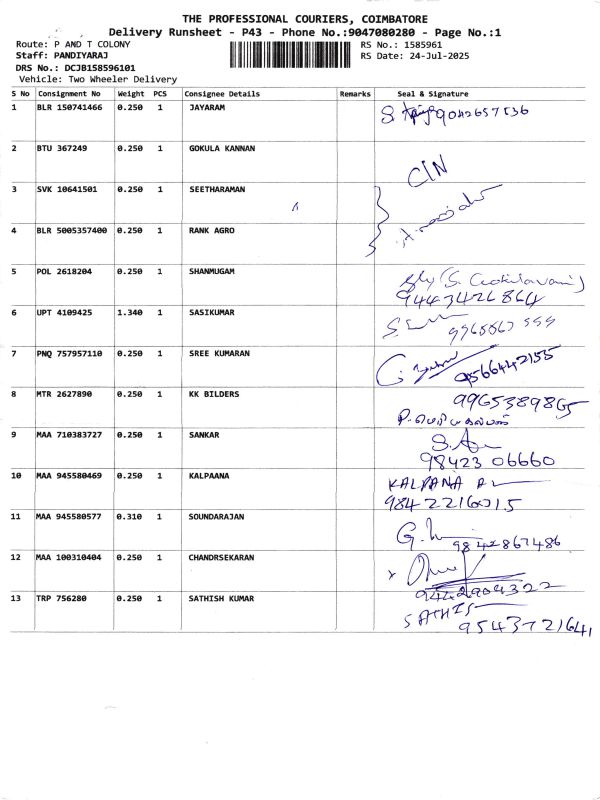 THE PROFESSIONAL COURIERS, COIMBATORE
Delivery Runsheet - P43 - Phone No.:9047080280 - Page No.:1
Route: P AND T COLONY
RS No.: 1585961
Staff: PANDIYARAJ
RS Date: 24-Jul-2025
DRS No.: DCJB158596101
Vehicle: Two Wheeler Delivery
S No Consignment No Weight PCS Consignee Details Remarks Seal & Signature
1 BLR 150741466 0.250 1 JAYARAM 9042657536
2 BTU 367249 0.250 1 GOKULA KANNAN
C/N
3 SVK 10641501 0.250 1 SEETHARAMAN
4 BLR 5005357400 0.250 1 RANK AGRO
5 POL 2618204 0.250 1 SHANMUGAM
9443426864
6 UPT 4109425 1.340 1 SASIKUMAR
7 PNQ 757957110 0.250 1 SREE KUMARAN
9566442155
8 MTR 2627890 0.250 1 KK BILDERS
9965389865
9 MAA 710383727 0.250 1 SANKAR
98423 06660
10 MAA 945580469 0.250 1 KALPAANA KALPANA
9842216015
11 MAA 945580577 0.310 1 SOUNDARAJAN
9842867486
12 MAA 100310404 0.250 1 CHANDRSEKARAN
9442904322
13 TRP 756280 0.250 1 SATHISH KUMAR SATHIS
9543721641